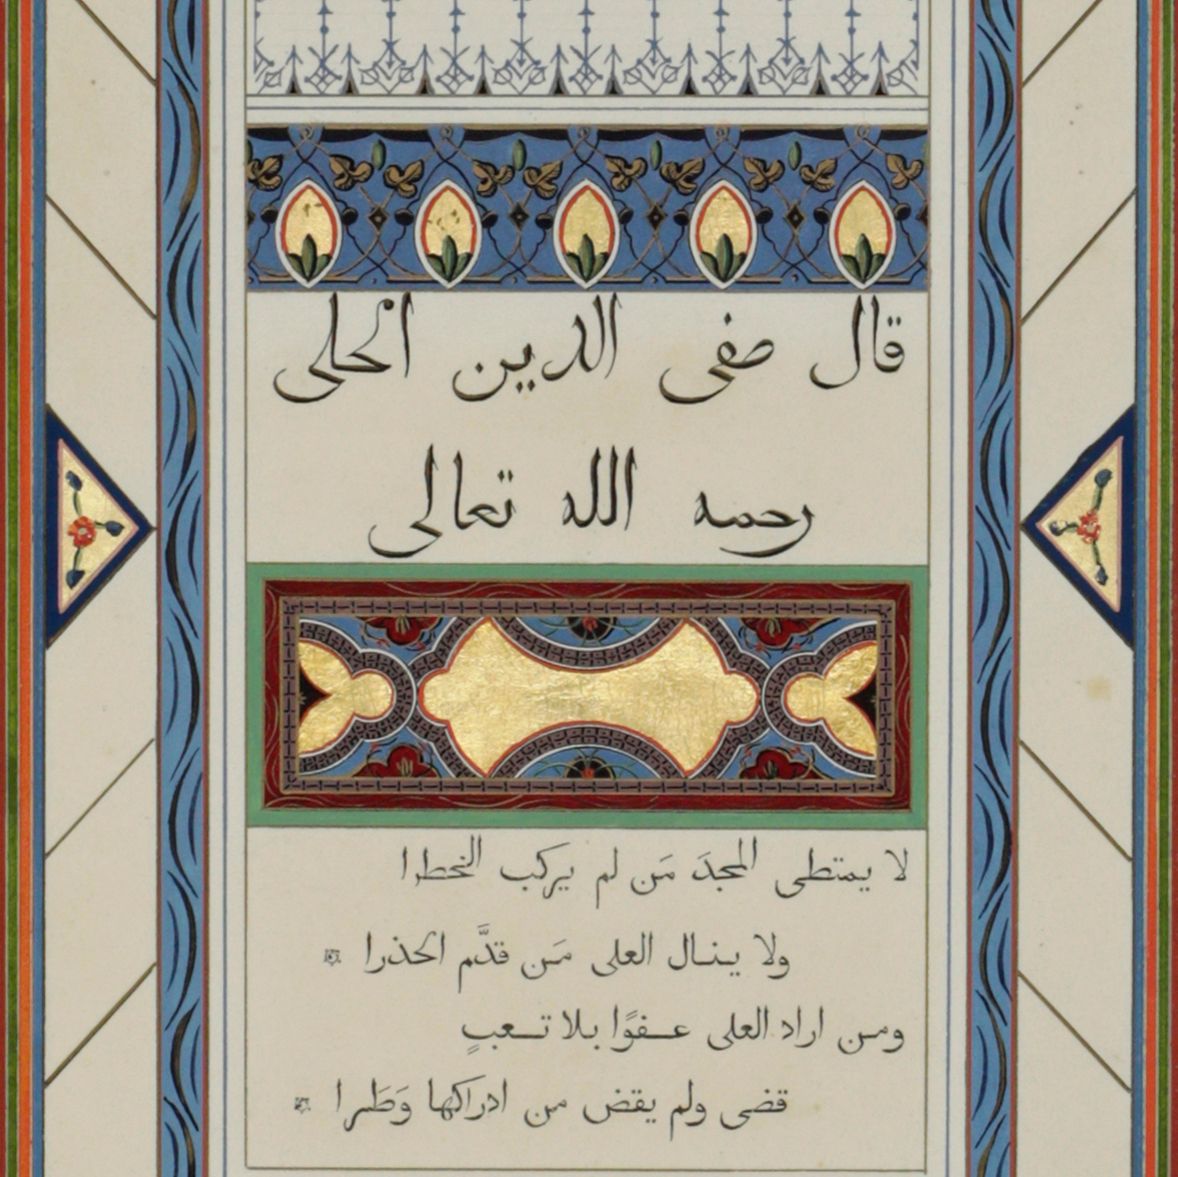 قال صفى الدين الحلى
رحمه الله تعالى
لا يمتطى المجدَ مَن لم يركب الخطرا
ولا ينال العلى مَن قدَّم الحذرا
ومن اراد العلى عفوًا بلا تعبٍ
قضى ولم يقض من ادراكها وَطَرا